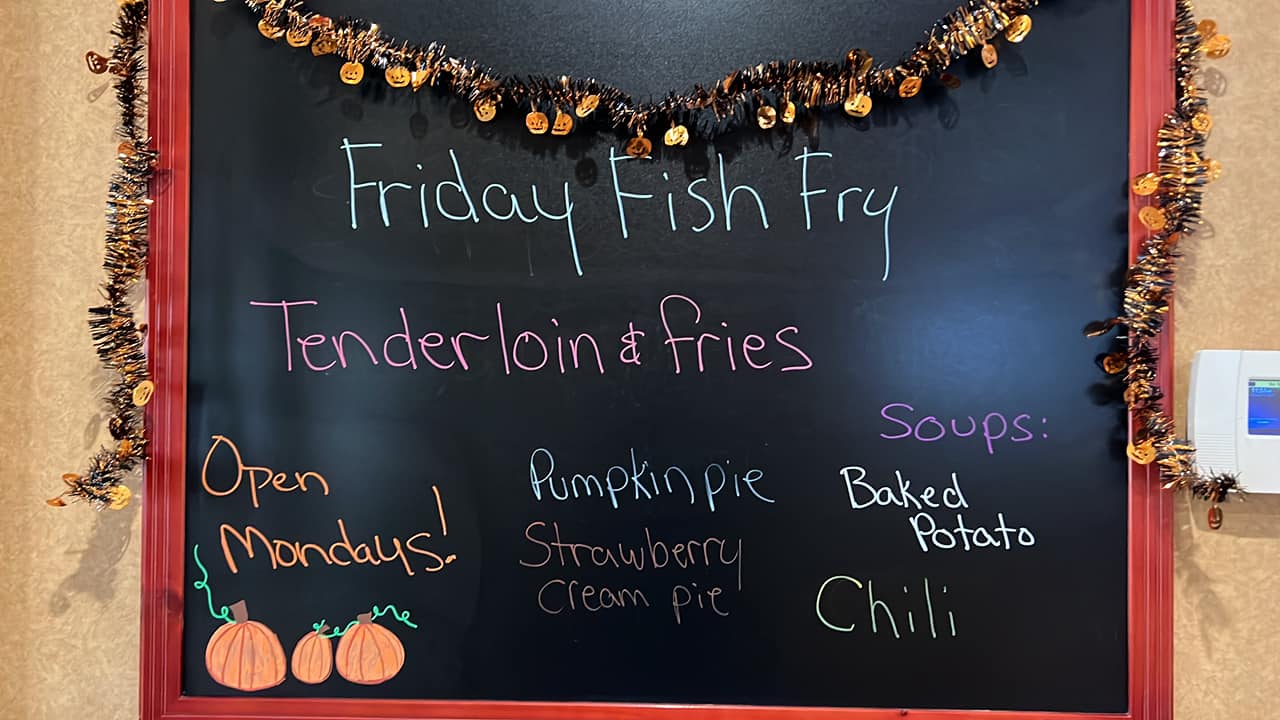 Friday Fish Fry
Tenderloin & fries
Open
Mondays!
Pumpkin pie
Strawberry
Cream pie
Soups:
Baked
Potato
Chili